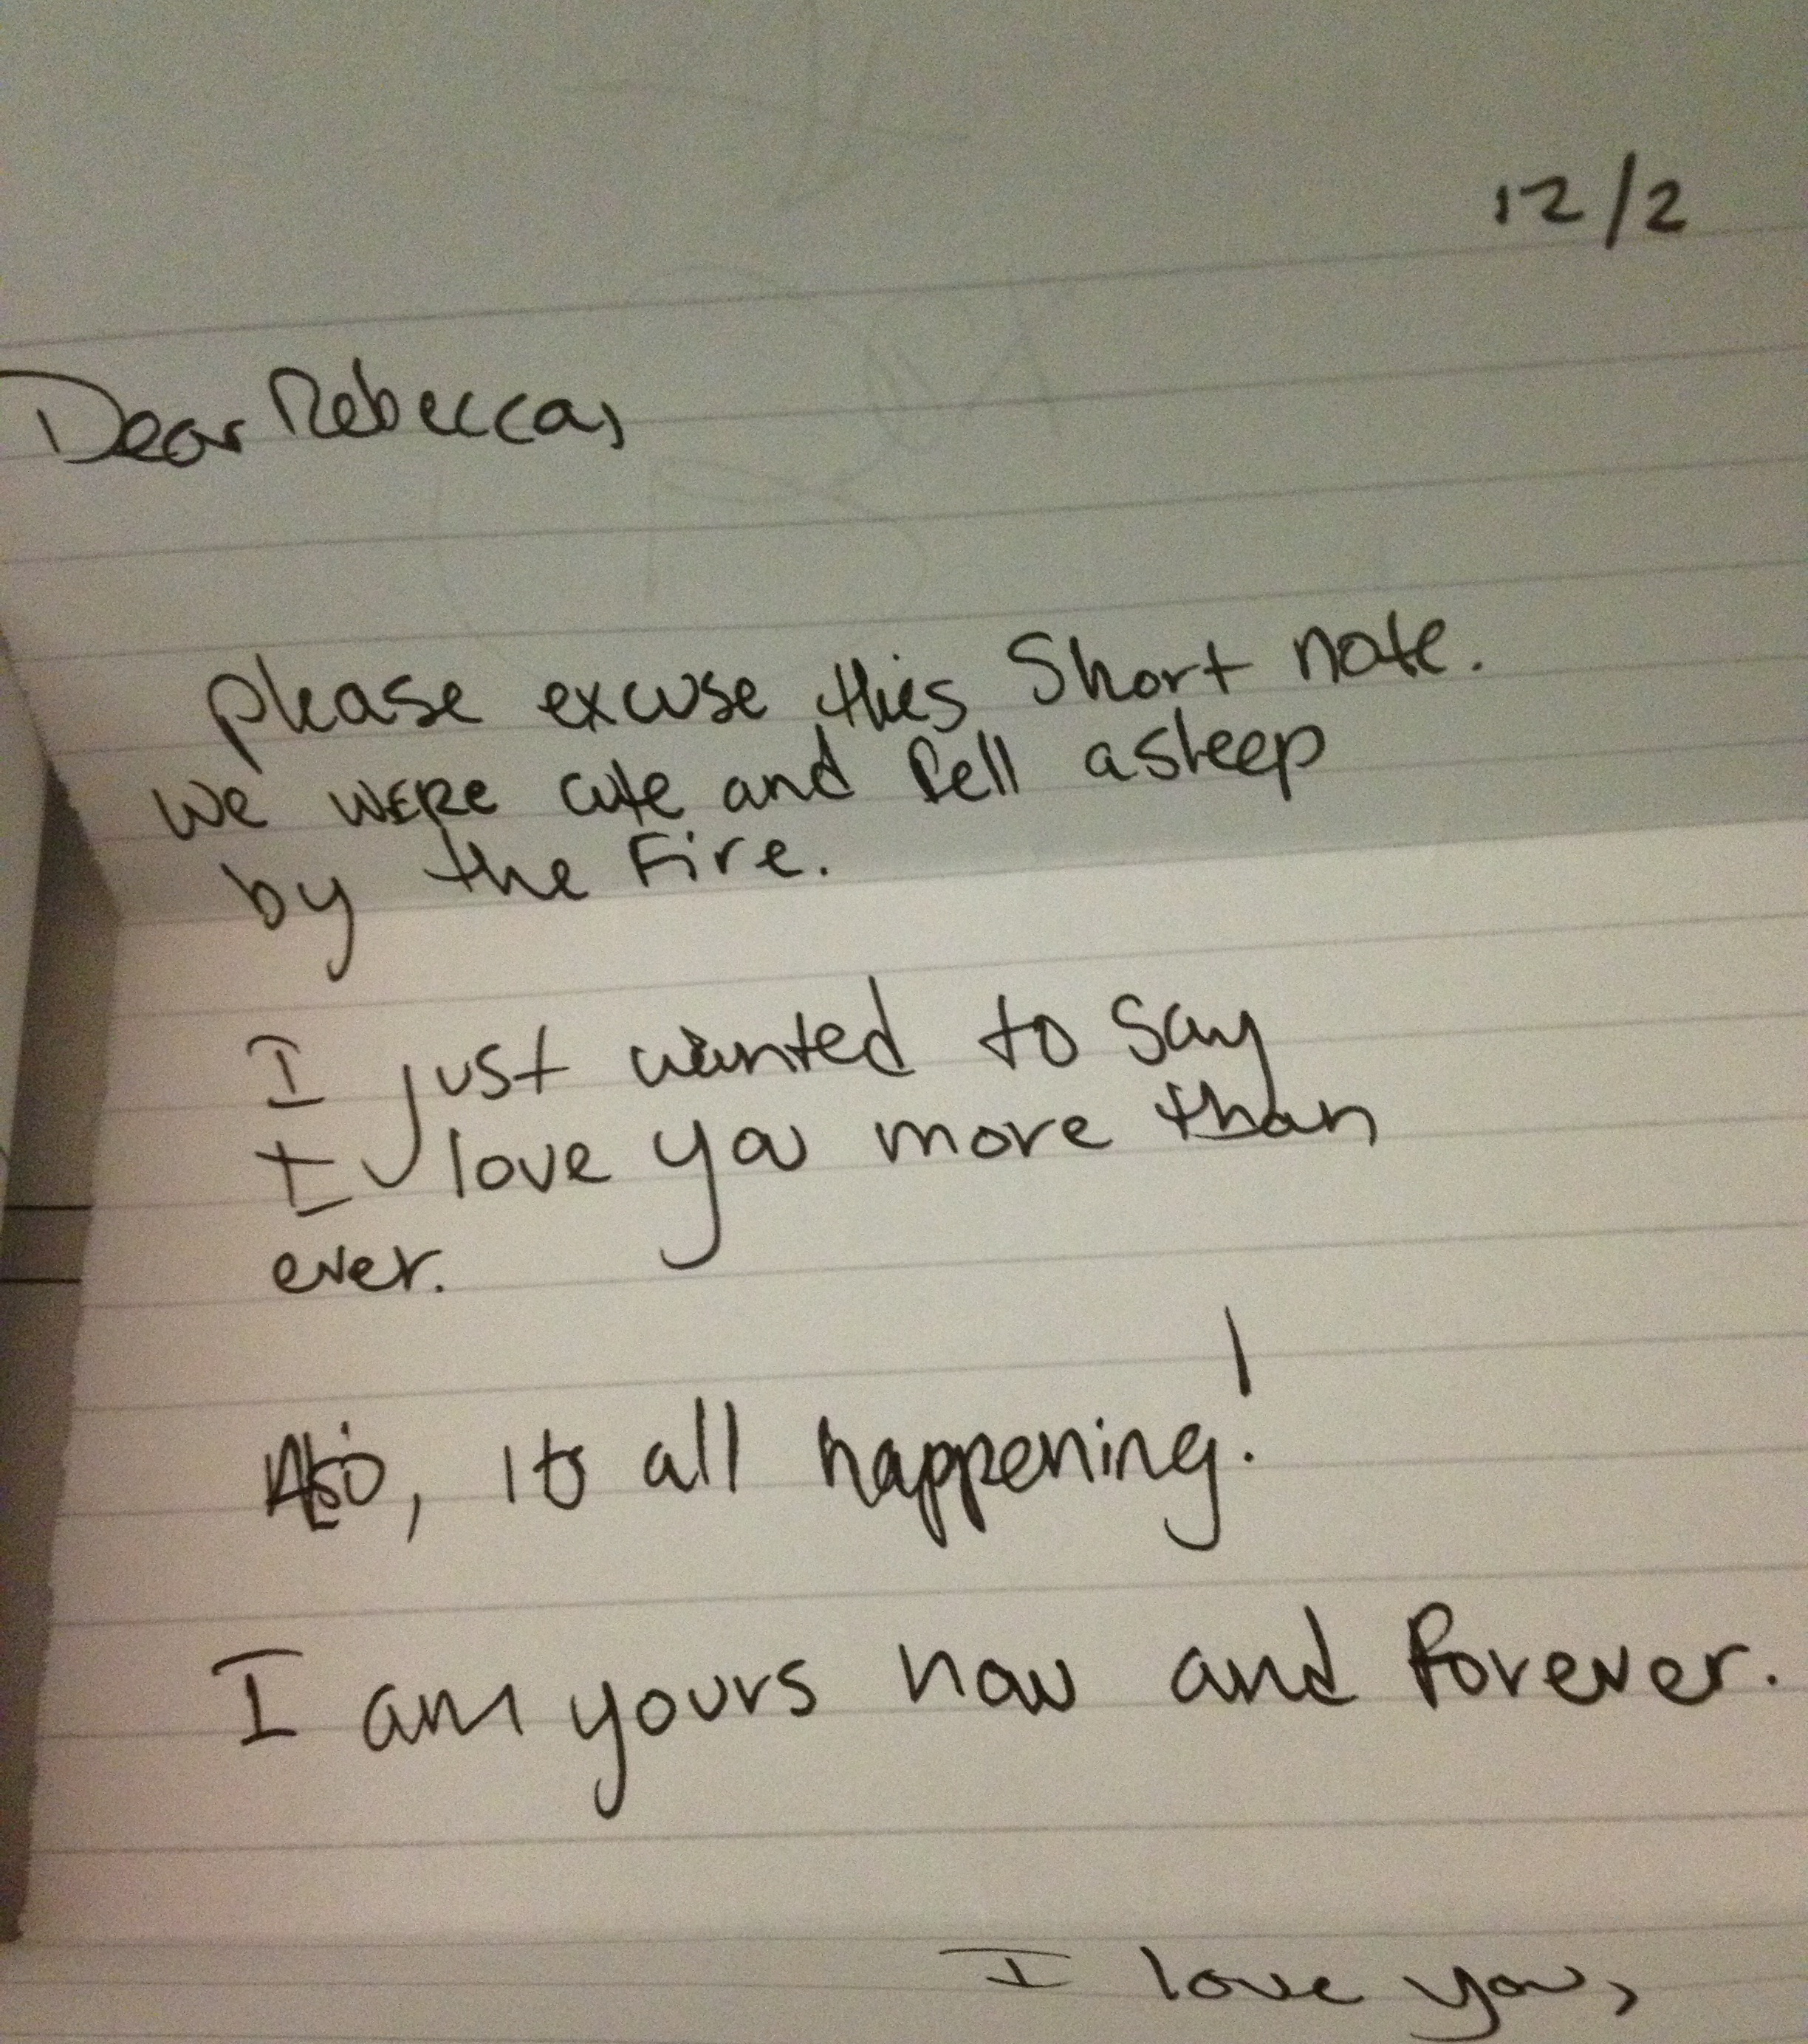 12/2
Dear Rebecca,
please excuse this Short note.
we were cute and fell asleep
by the Fire.
I just wanted to say
I love you more than
ever.
Also, its all happening!
I am yours now and forever.
I love you,